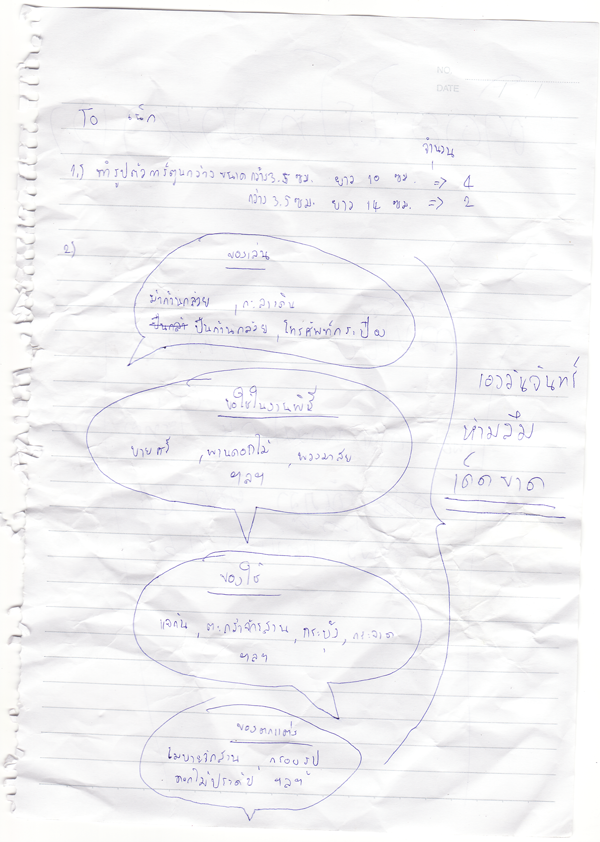 NO.
DATE
To เน็ก
จำนวน
1.) ทำรูปตัวการ์ตูนกว่าง ขนาด กว้าง 3.5 ซม. ยาว 10 ซม. => 4
กว้าง 3.5 ซม. ยาว 14 ซม. => 2
2)
ของเล่น
ม้าก้านกล้วย , กะลาเดิน
ปืนก้านกล้วย , โทรศัพท์กระป๋อง
ของใช้ในงานพิธี
บายศรี , พานดอกไม้ , พวงมาลัย
ฯลฯ
ของใช้
แจกัน , ตะกร้าจักสาน , กระบุง , กระจาด
ฯลฯ
ของตกแต่ง
โมบายจักสาน , กรอบรูป
ดอกไม้ประดับ ฯลฯ
เอาวันจันทร์
ห้ามลืม
เด็ดขาด